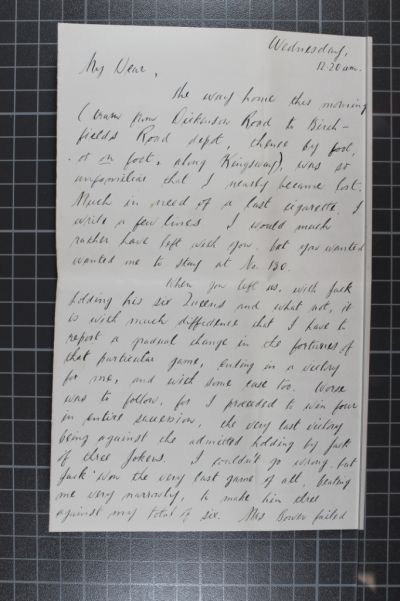 Wednesday,
12.20 a.m.
My Dear,
The way home this morning
(tram from Dickenson Road to Birch-
fields Road depot, thence by foot,
or on foot, along Kingsway), was so
unfamiliar that I nearly became lost.
Much in need of a last cigarette, I
write a few lines. I would much
rather have left with you, but you wanted
wanted me to stay at No. 130.
When you left us, with Jack
holding his six Queens and what not, it
is with much diffidence that I have to
report a gradual change in the fortunes of
that particular game, ending in a victory
for me, and with some ease too. Worse
was to follow, for I proceeded to win four
in entire succession, the very last victory
being against the admitted holding by Jack
of three Jokers. I couldn't go wrong, but
Jack won the very last game of all, beating
me very narrowly, to make him three
against my total of six. Mrs Bower failed